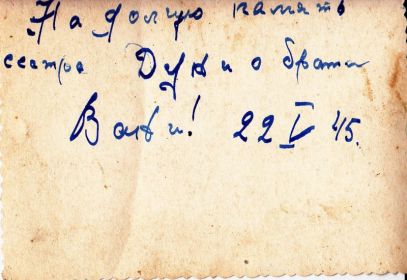 На долгую память
сестра Дуни о брати
Вани! 22 V 45.